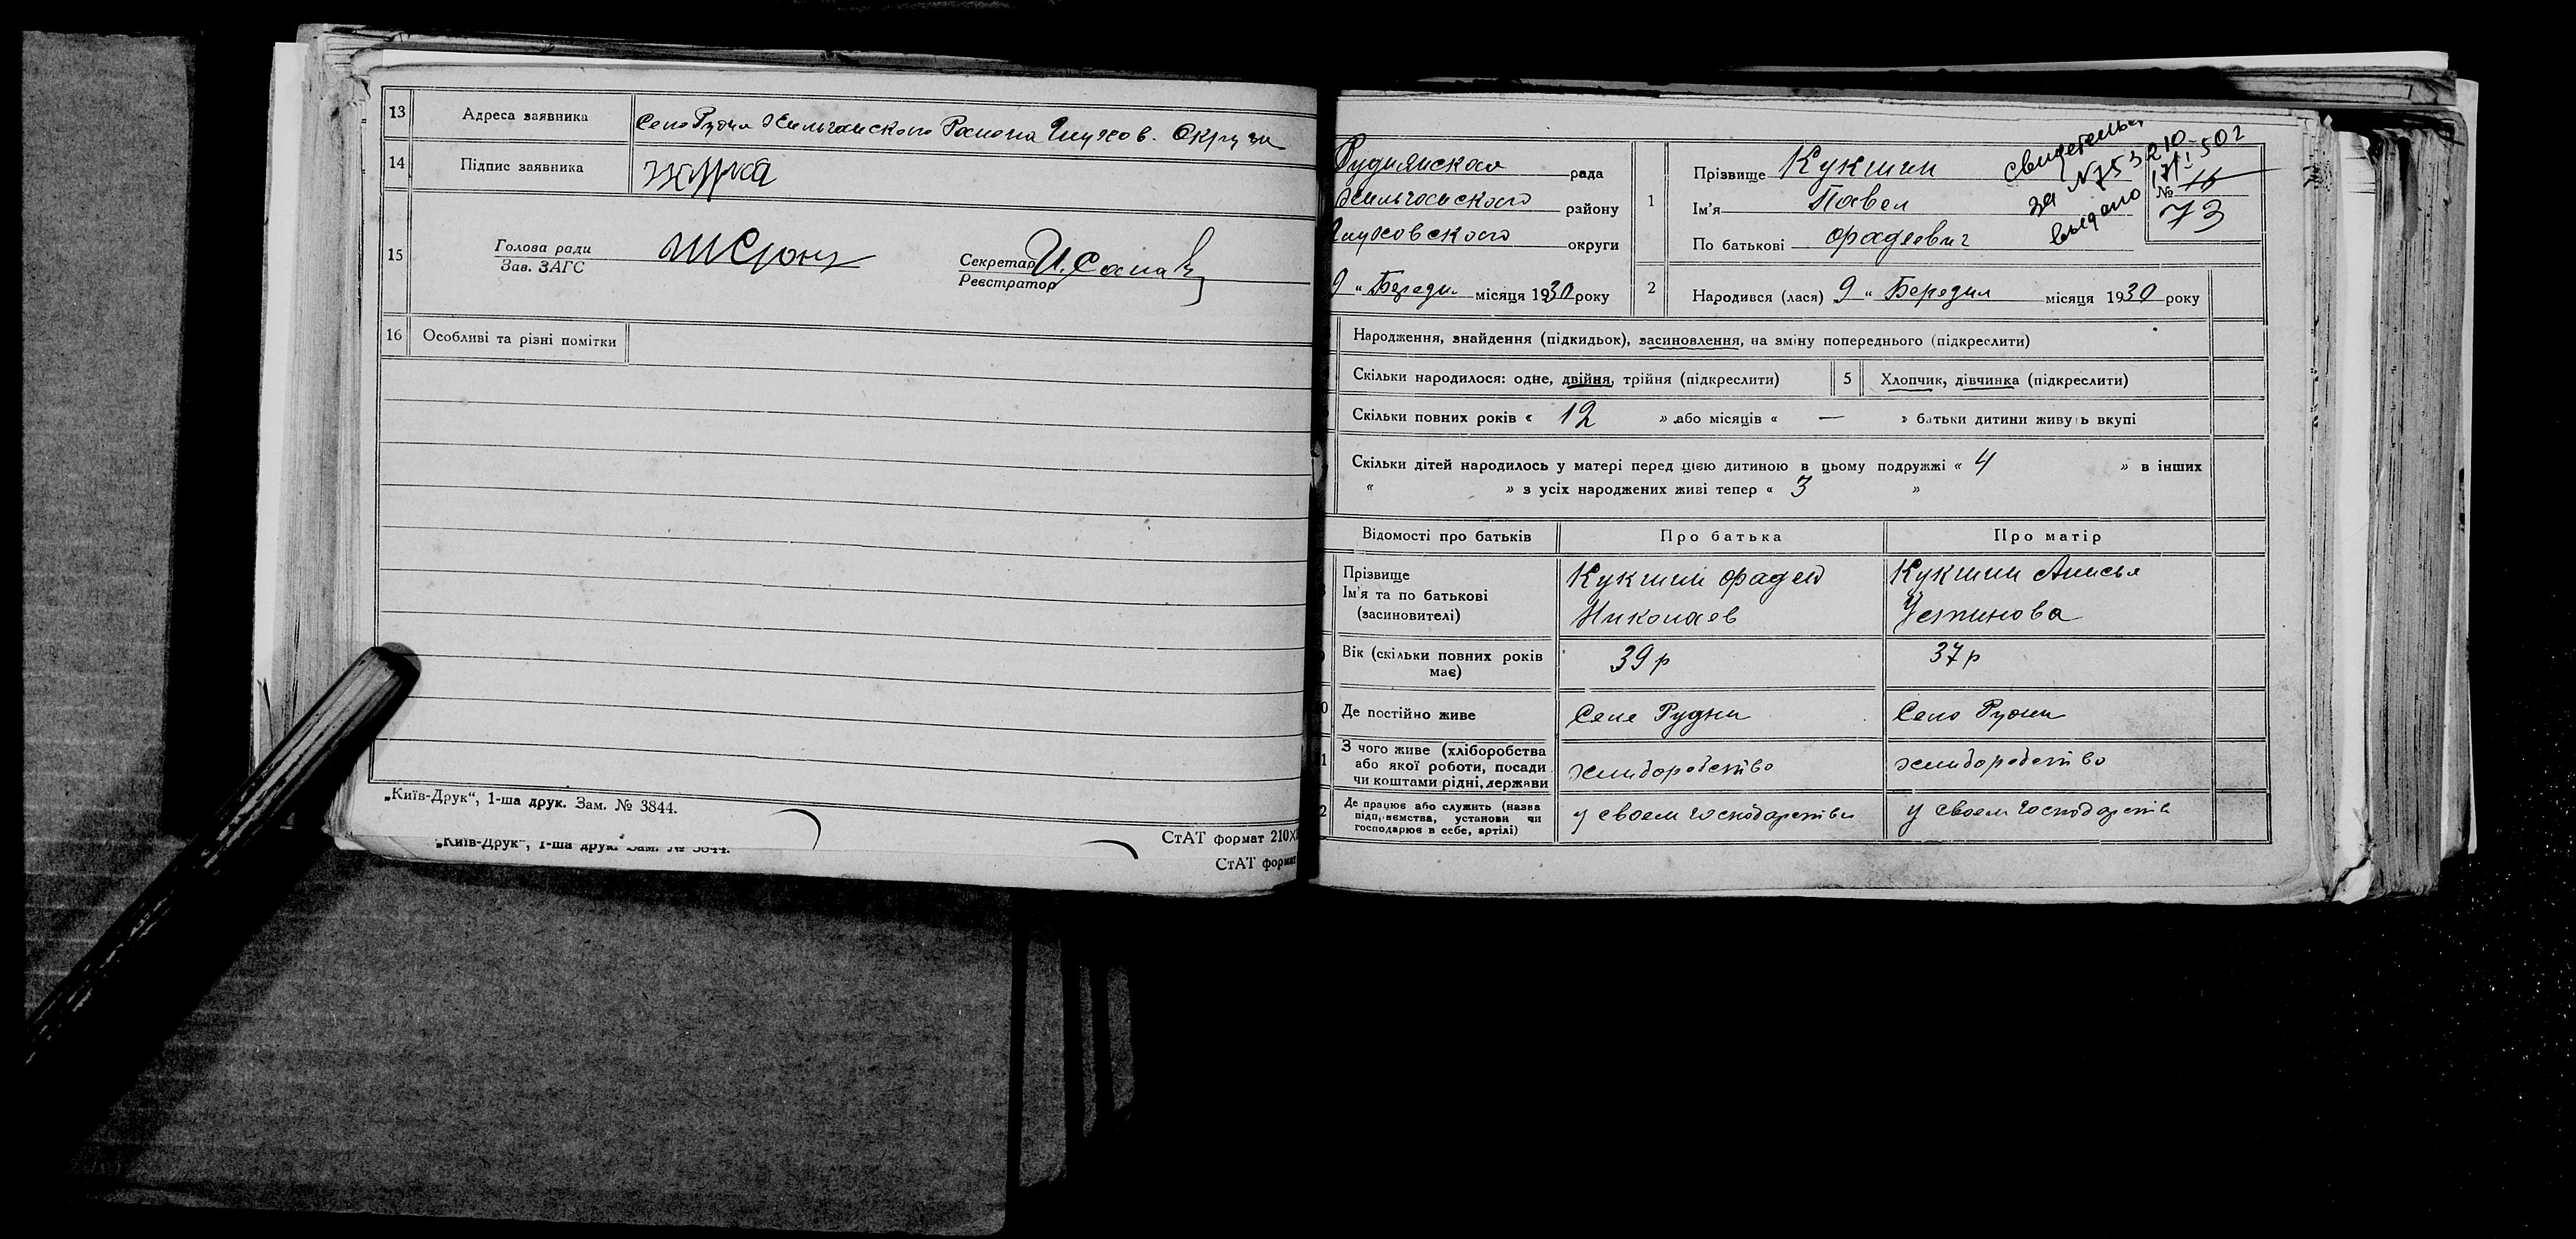 13 Адреса заявника Село Рудня Хильчанского Района Глухов. Округи
14 Підпис заявника
15 Голова ради
Зав. ЗАГС
Секретар
Реєстратор
16 Особливі та різні помітки
„Київ-Друк“, 1-ша друк. Зам. № 3844.
СтАТ формат 210Х
„Київ-Друк“, 1-ша друк. Зам. № 3844.
СтАТ формат
Руднянская рада
Хильчанского району
Глуховского округи
9 „ Березил місяця 1930 року
1 Прізвище Кукшин
Ім'я Павел
По батькові Фрадеевич
свидетельст
за N753210
выдано 17/I 502
№ 16
73
2 Народився (лася) 9 „ Березил місяця 1930 року
Народження, знайдення (підкидьок), засиновлення, на зміну попереднього (підкреслити)
Скільки народилося: одне, двійня, трійня (підкреслити) 5 Хлопчик, дівчинка (підкреслити)
Скільки повних років « 12 » або місяців « — » батьки дитини живуть вкупі
Скільки дітей народилось у матері перед цією дитиною в цьому подружжі « 4 » в інших
« » з усіх народжених живі тепер « 3 »
Відомості про батьків Про батька Про матір
Прізвище
Ім'я та по батькові
(засиновителі)
Кукшин Фрадей
Николаев
Кукшин Анисья
Устинова
Вік (скільки повних років
має)
39 р 37 р
Де постійно живе Селе Рудни Село Рудни
З чого живе (хліборобства
або якої роботи, посади
чи коштами рідні, держави
хлиборобство хлиборобство
2 Де працює або служить (назва
підприємства, установи чи
господарює в себе, артілі)
у своем господарстви у своем господарств